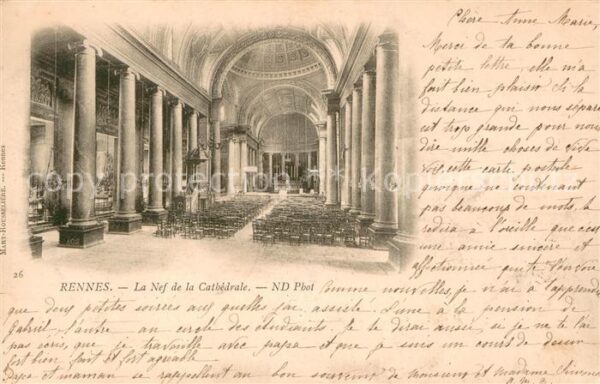 Chère Anne Marie,
Merci de ta bonne
petite lettre, elle m'a
fait bien plaisir. Si la
distance qui nous sépare
est trop grande pour nous
dire mille choses de vive
voix, cette carte postale
quoique ne contenant
pas beaucoup de mots, te
redira à l'oreille que c'est
une amie sincère et
affectionnée qui te l'envoie
26
MARY-ROUSSELIÈRE. — Rennes
RENNES. — La Nef de la Cathédrale. — ND Phot
Comme nouvelles, je n'ai à t'apprendre
que deux petites soirées aux quelles j'ai assisté. L'une à la pension de
Gabriel, l'autre au cercle des étudiants. Je te dirai aussi, si je ne te l'ai
pas écris, que je travaille avec papa et que je suis un cours de dessin
fort bien fait et fort agréable.
Papa et maman se rappellent au bon souvenir de monsieur et madame
copyright photo